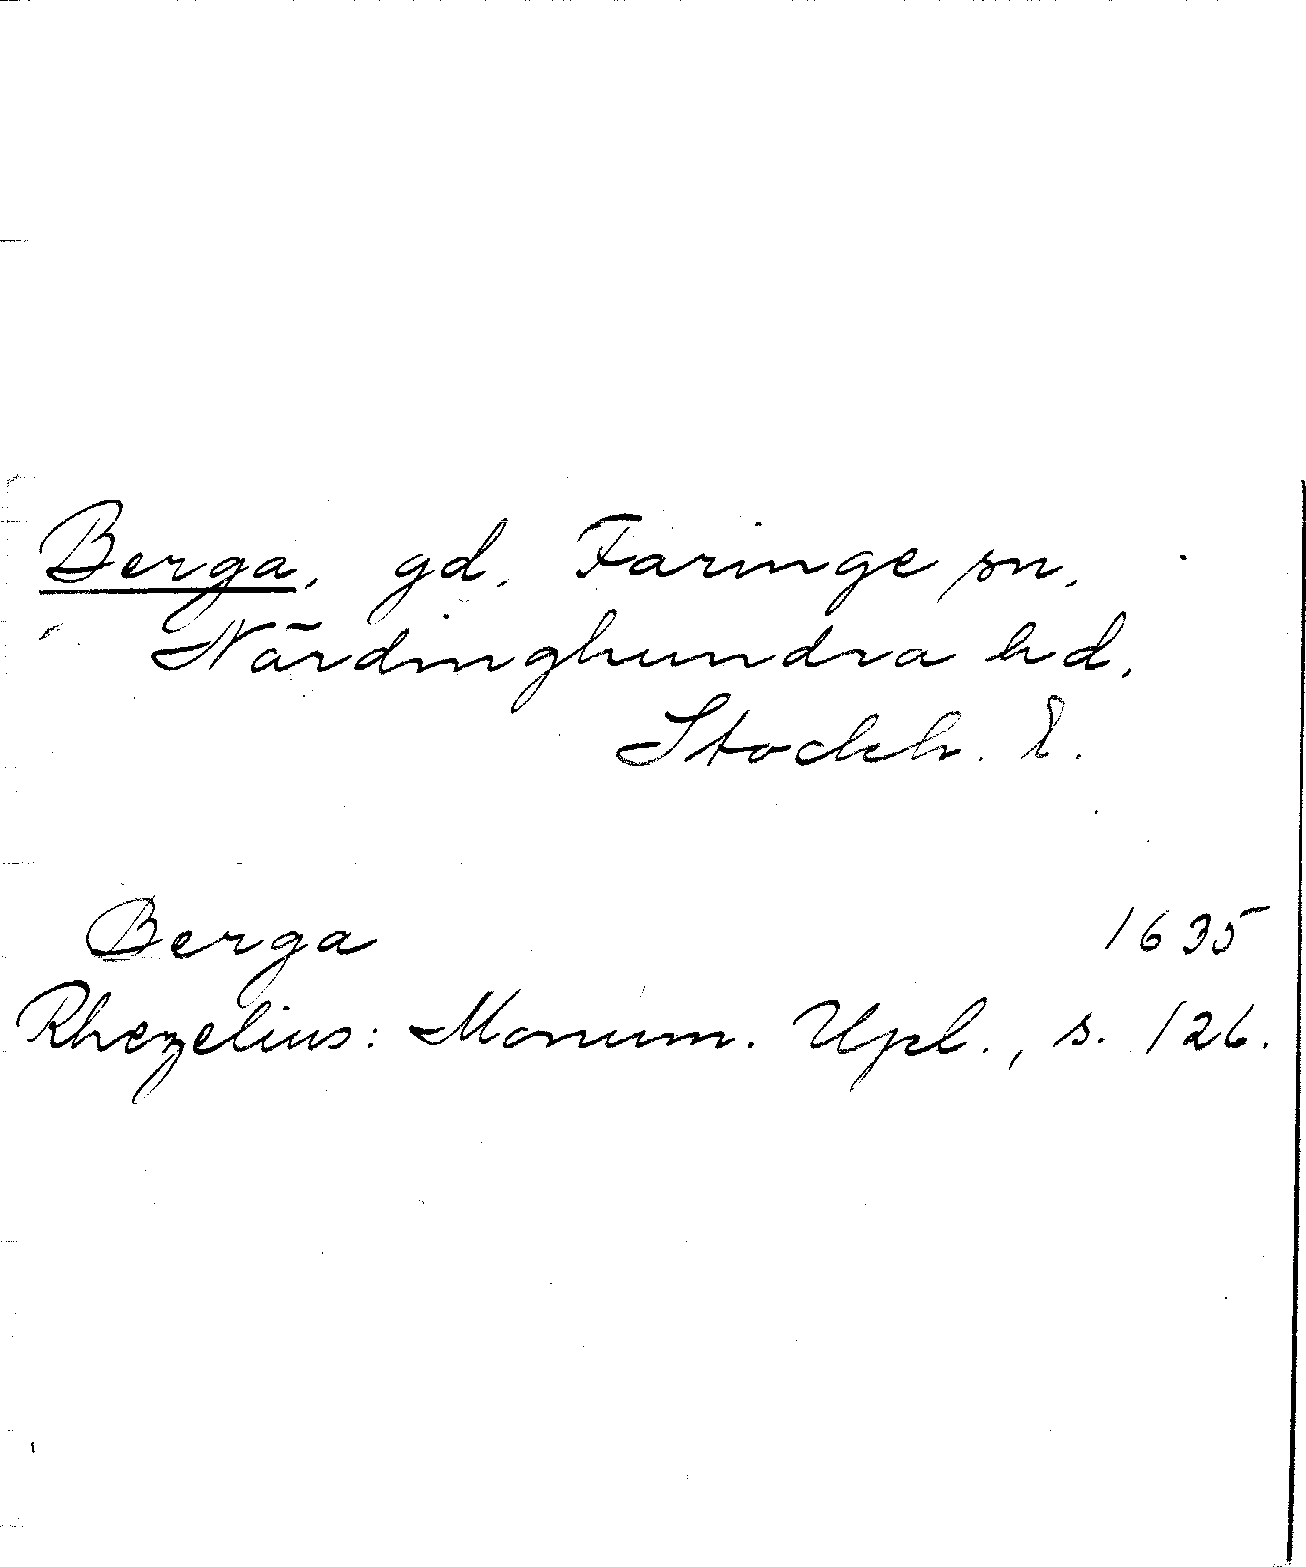 Berga, gd, Faringe sn,
Närdinghundra hd,
Stockh. l.
Berga 1635
Rhezelius: Monum. Upl., s. 126.